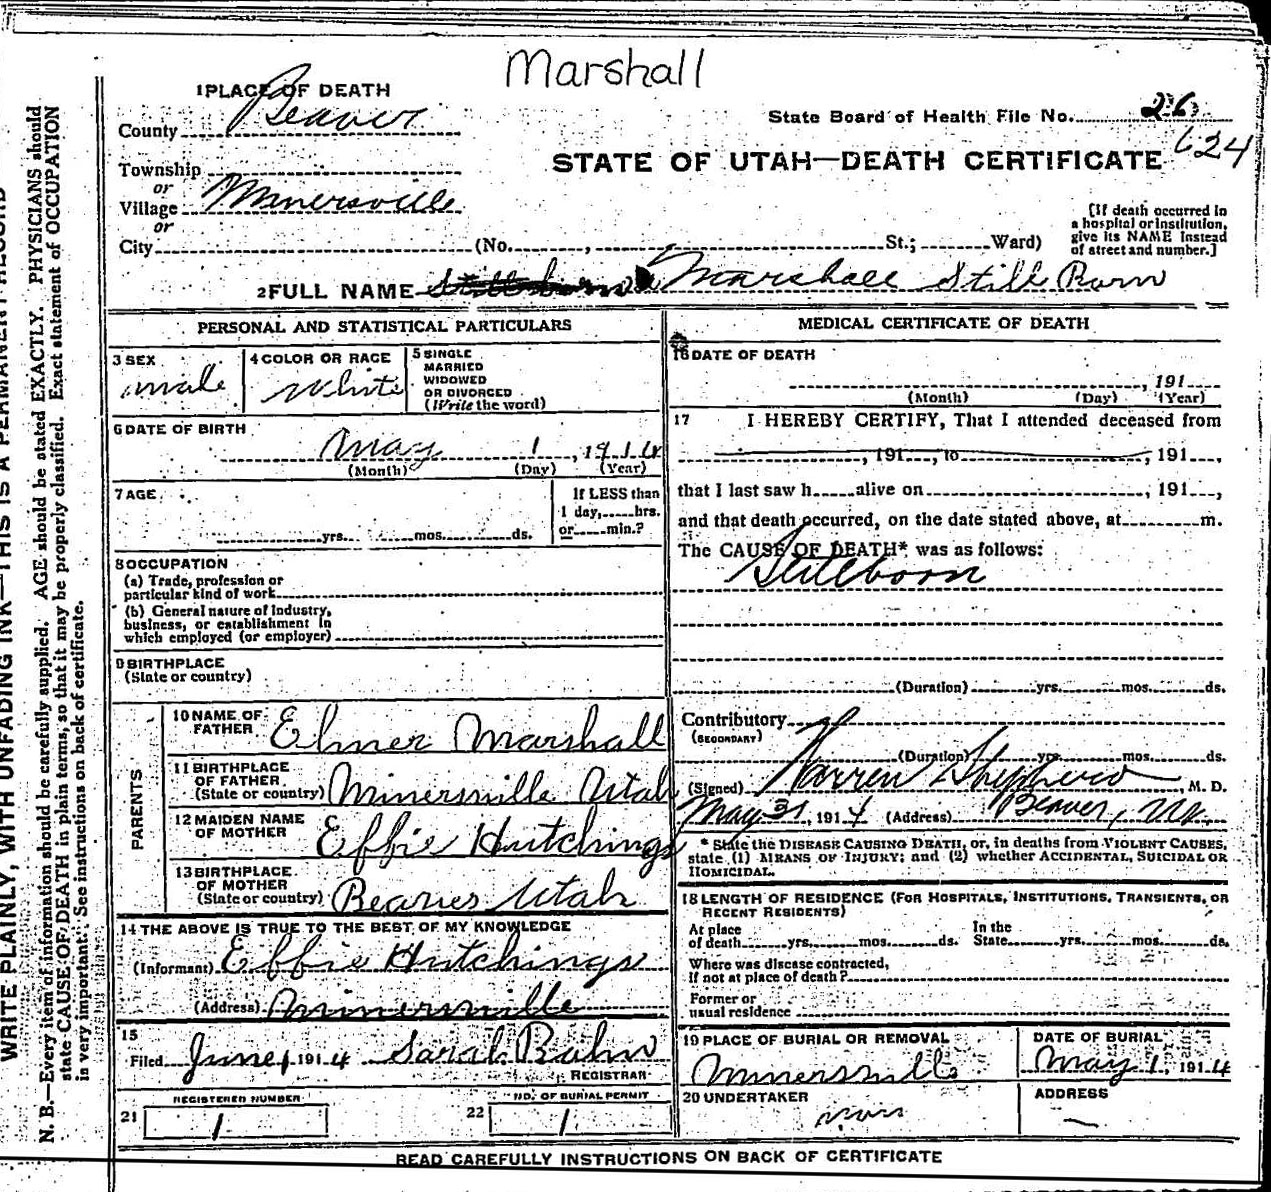 Marshall
1 PLACE OF DEATH
County Beaver
State Board of Health File No. 26
624
STATE OF UTAH—DEATH CERTIFICATE
Township
or
Village Minersville
or
City (No. , St.; Ward)
[If death occurred in a hospital or institution, give its NAME instead of street and number.]
2 FULL NAME Marshall Still Born
PERSONAL AND STATISTICAL PARTICULARS
3 SEX
male
4 COLOR OR RACE
White
5 SINGLE
MARRIED
WIDOWED
OR DIVORCED
(Write the word)
6 DATE OF BIRTH
May 1, 1914
(Month) (Day) (Year)
7 AGE
yrs. mos. ds.
If LESS than
1 day, hrs.
or min.?
8 OCCUPATION
(a) Trade, profession or
particular kind of work
(b) General nature of industry,
business, or establishment in
which employed (or employer)
9 BIRTHPLACE
(State or country)
PARENTS
10 NAME OF
FATHER Elmer Marshall
11 BIRTHPLACE
OF FATHER
(State or country) Minersville Utah
12 MAIDEN NAME
OF MOTHER Effie Hutchings
13 BIRTHPLACE
OF MOTHER
(State or country) Beaver Utah
14 THE ABOVE IS TRUE TO THE BEST OF MY KNOWLEDGE
(Informant) Effie Hutchings
(Address) Minersville
15
Filed June 1, 1914 Sarah
REGISTRAR
REGISTERED NUMBER
21 1
NO. OF BURIAL PERMIT
22 1
MEDICAL CERTIFICATE OF DEATH
16 DATE OF DEATH
, 191
(Month) (Day) (Year)
17 I HEREBY CERTIFY, That I attended deceased from
, 191 , to , 191 ,
that I last saw h alive on , 191 ,
and that death occurred, on the date stated above, at m.
The CAUSE OF DEATH* was as follows:
Stillborn
(Duration) yrs. mos. ds.
Contributory
(SECONDARY)
(Duration) yrs. mos. ds.
(Signed) Warren Shepherd, M. D.
May 31, 1914 (Address) Beaver, Ut.
* State the DISEASE CAUSING DEATH, or, in deaths from VIOLENT CAUSES,
state (1) MEANS OF INJURY; and (2) whether ACCIDENTAL, SUICIDAL OR
HOMICIDAL.
18 LENGTH OF RESIDENCE (FOR HOSPITALS, INSTITUTIONS, TRANSIENTS, OR
RECENT RESIDENTS)
At place
of death yrs. mos. ds.
In the
State yrs. mos. ds.
Where was disease contracted,
if not at place of death?
Former or
usual residence
19 PLACE OF BURIAL OR REMOVAL
Minersville
DATE OF BURIAL
May 1, 1914
20 UNDERTAKER
ADDRESS
READ CAREFULLY INSTRUCTIONS ON BACK OF CERTIFICATE
WRITE PLAINLY, WITH UNFADING INK—THIS IS A PERMANENT RECORD
N. B.—Every item of information should be carefully supplied. AGE should be stated EXACTLY. PHYSICIANS should
state CAUSE OF DEATH in plain terms, so that it may be properly classified. Exact statement of OCCUPATION
is very important. See instructions on back of certificate.